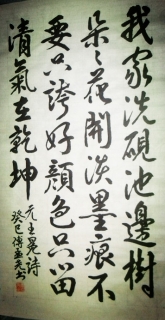 我家洗硯池邊樹
朵々花開淡墨痕不
要只誇好顏色只留
清氣在乾坤
元王冕詩
癸巳傅書